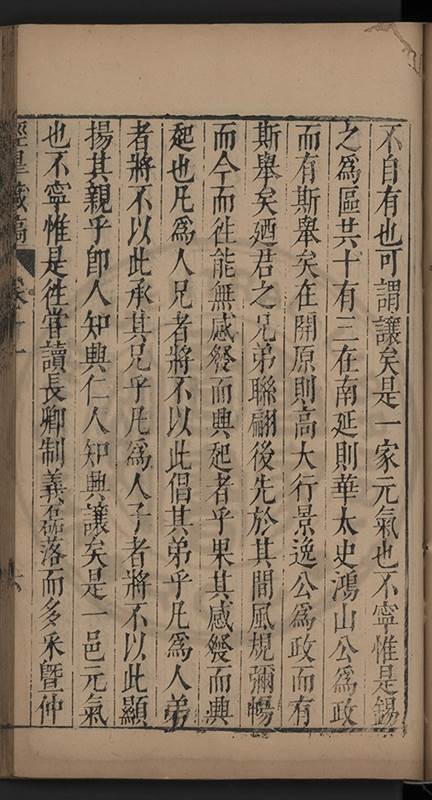 不自有也可謂讓矣是一家元氣也不寧惟是錫
之爲區共十有三在南延則華太史鴻山公爲政
而有斯舉矣在開原則高大行景逸公爲政而有
斯舉矣廼君之兄弟聯翩後先於其間風規彌暢
而今而徃能無感發而興起者乎果其感發而興
起也凡爲人兄者將不以此倡其弟乎凡爲人弟
者將不以此承其兄乎凡爲人子者將不以此顯
揚其親乎卽人知興仁人知興讓矣是一邑元氣
也不寧惟是徃嘗讀長卿制義磊落而多采曁仲
涇臯藏稿 卷十一 六